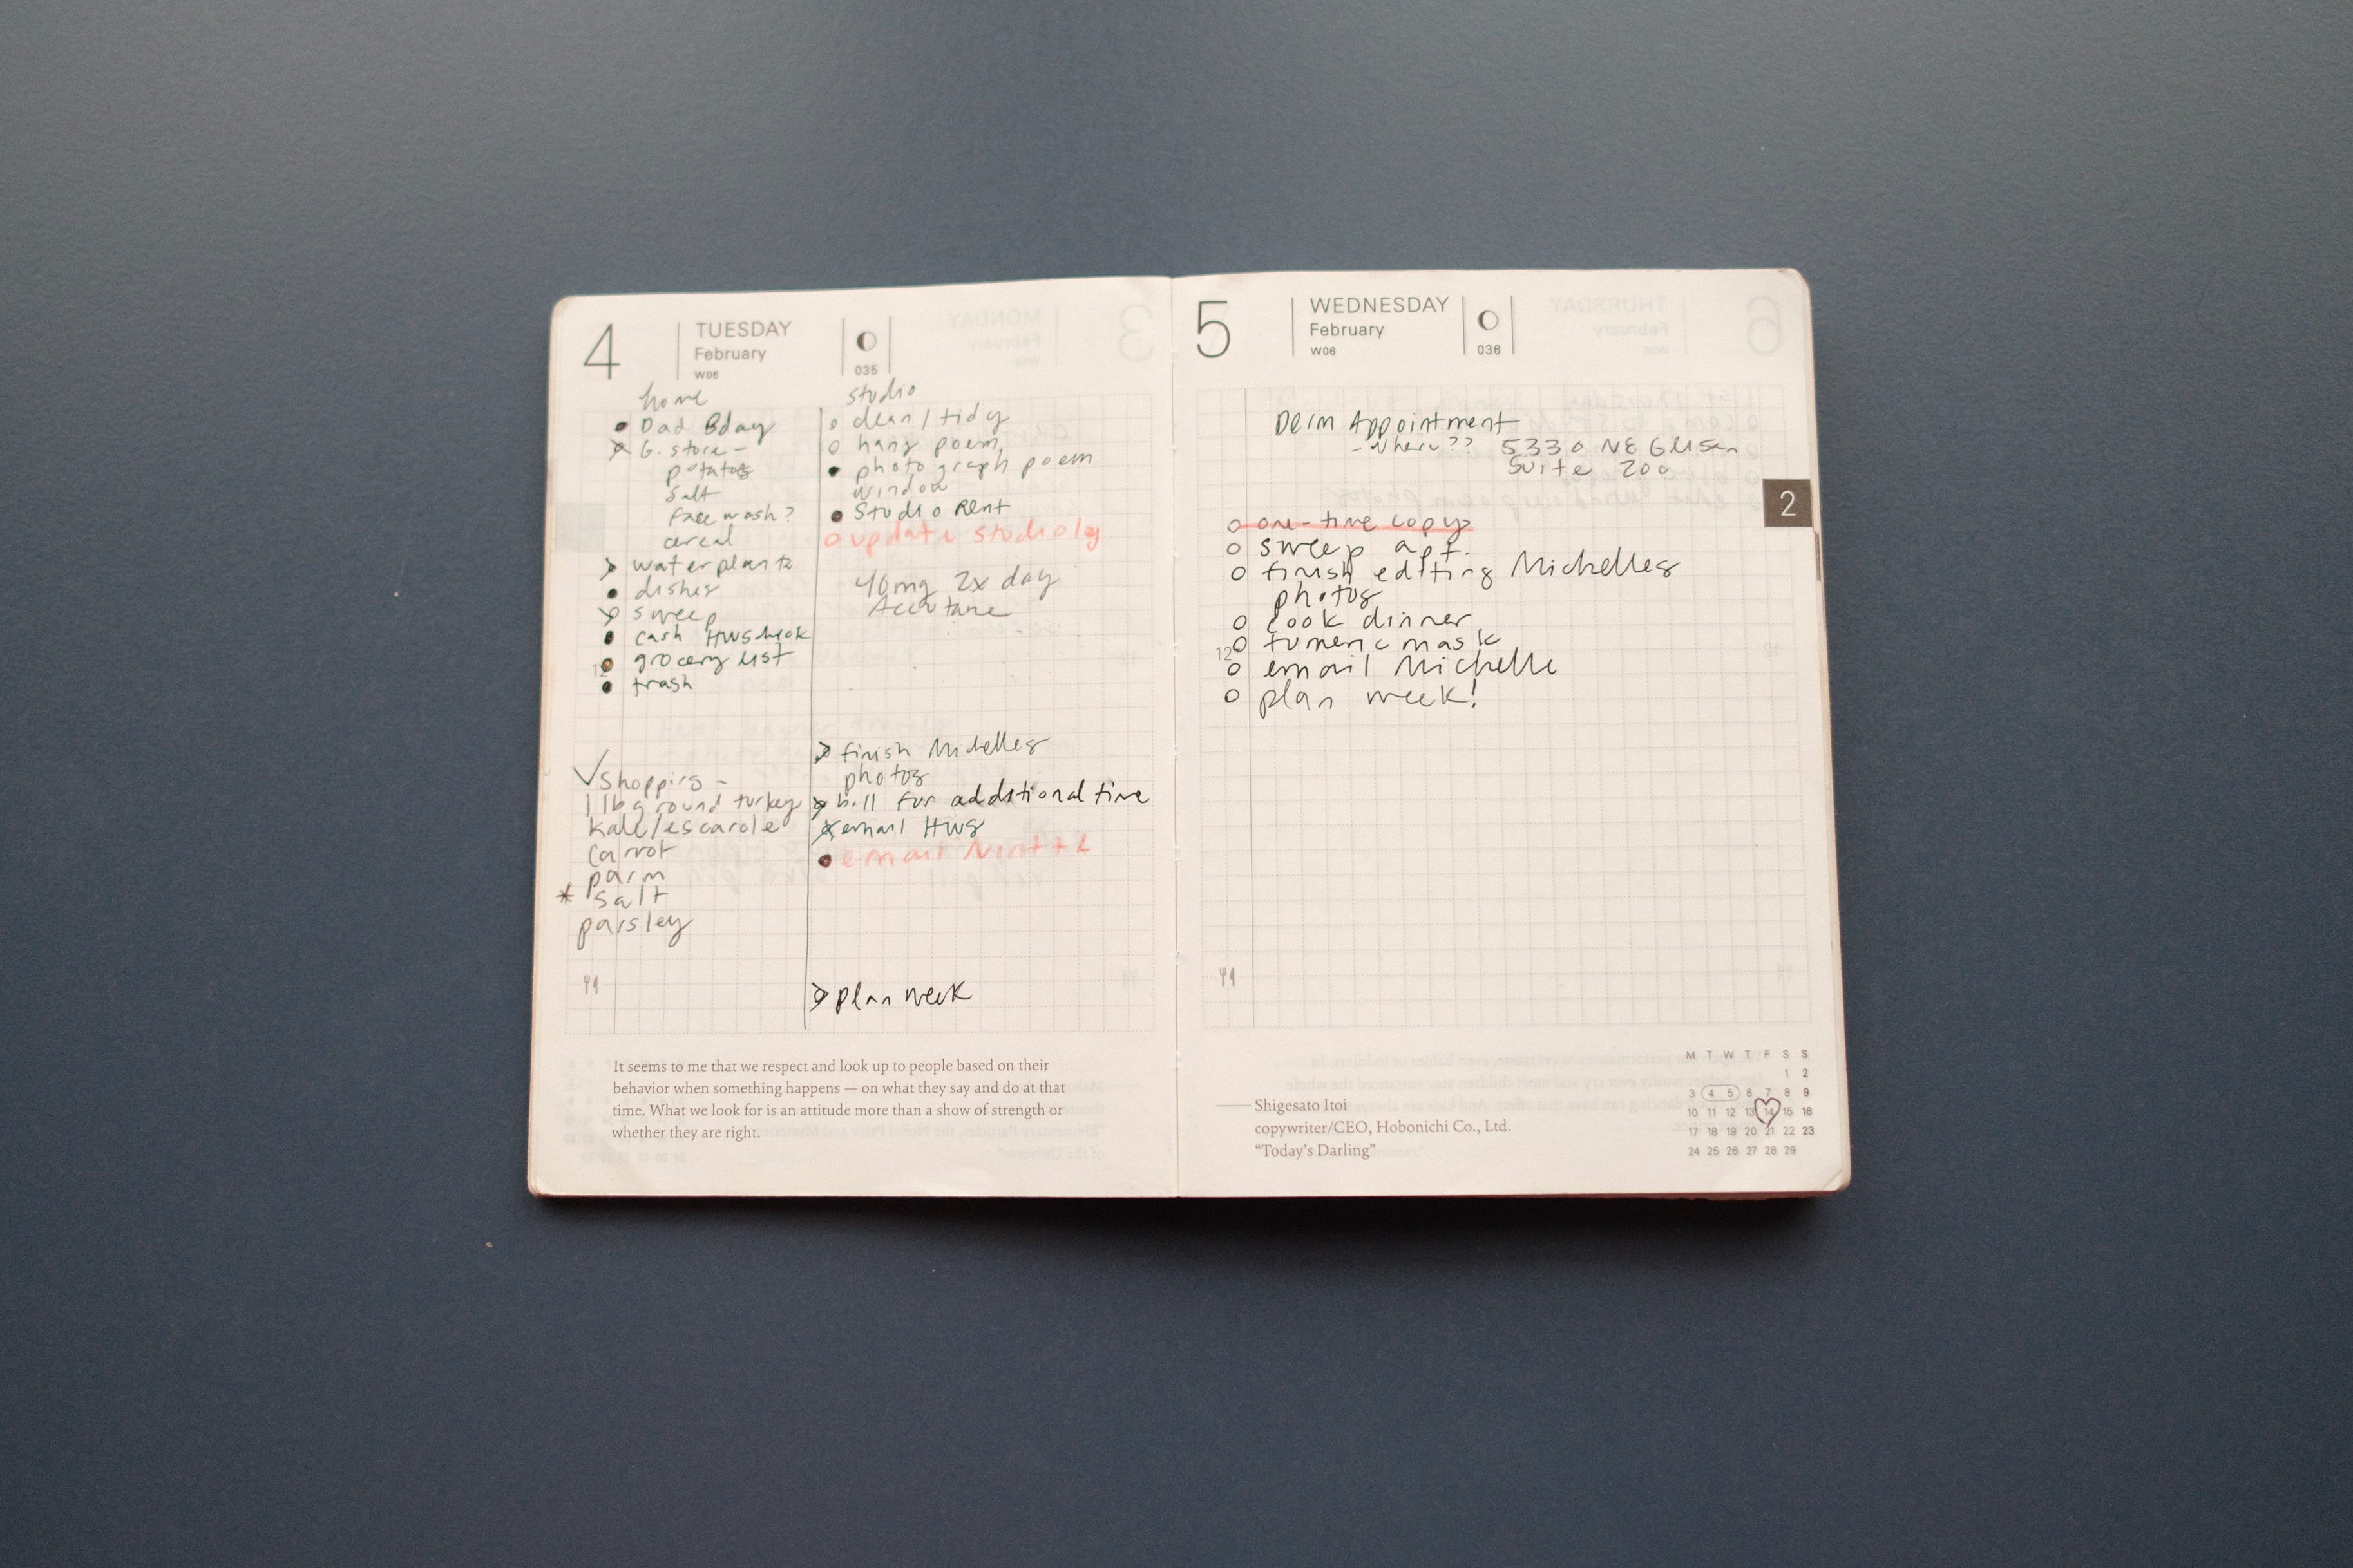 4
TUESDAY
February
W06
035
home
Dad Bday
G. store -
potatos
salt
face wash?
cereal
water plants
dishes
sweep
cash HWS check
grocery list
trash
studio
clean / tidy
hang poem
photograph poem
window
Studio Rent
update studio log
40mg 2x day
Accutane
12
✓ shopping -
1 lb ground turkey
kale/escarole
carrot
parm
* salt
parsley
finish Michelles
photos
bill for additional time
email HWS
email
plan week
It seems to me that we respect and look up to people based on their
behavior when something happens — on what they say and do at that
time. What we look for is an attitude more than a show of strength or
whether they are right.
5
WEDNESDAY
February
W06
036
Derm Appointment
- where?? 5330 NE Glisan
Suite 200
2
one-time copy
sweep apt.
finish editing Michelles
photos
cook dinner
tumeric mask
12
email Michelle
plan week!
Shigesato Itoi
copywriter/CEO, Hobonichi Co., Ltd.
"Today's Darling"
M T W T F S S
1 2
3 4 5 6 7 8 9
10 11 12 13 14 15 16
17 18 19 20 21 22 23
24 25 26 27 28 29